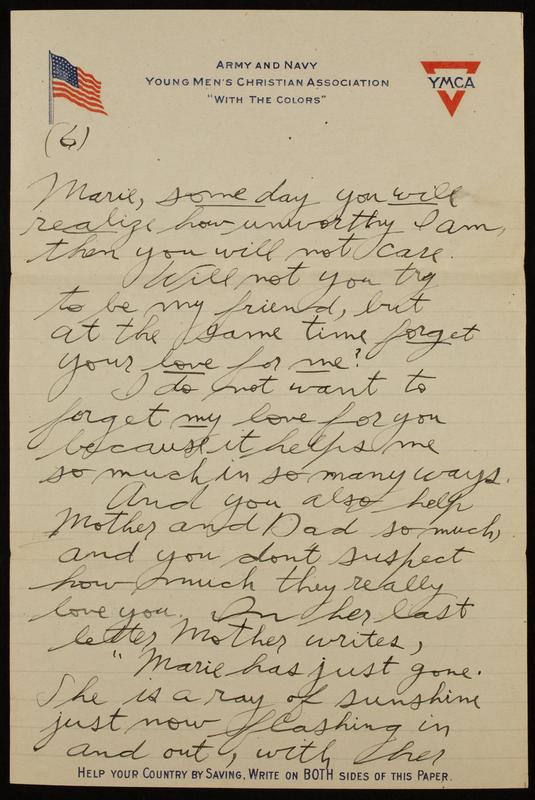 ARMY AND NAVY
YOUNG MEN'S CHRISTIAN ASSOCIATION
"WITH THE COLORS"
YMCA
(6)
Marie, some day you will
realize how unworthy I am,
then you will not care.
Will not you try
to be my friend, but
at the same time forget
your love for me?
I do not want to
forget my love for you
because it helps me
so much in so many ways.
And you also help
Mother and Dad so much,
and you dont suspect
how much they really
love you. In her last
letter Mother writes,
"Marie has just gone.
She is a ray of sunshine
just now flashing in
and out, with her
HELP YOUR COUNTRY BY SAVING, WRITE ON BOTH SIDES OF THIS PAPER.